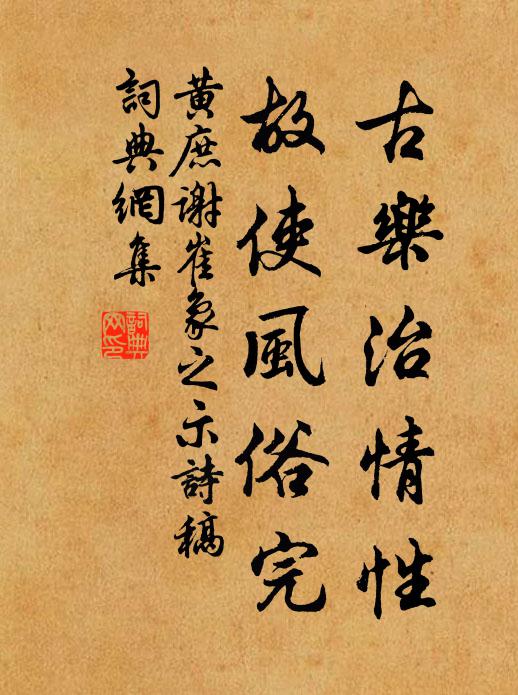 古樂治情性
故使風俗完
黃庶謝崔象之示詩稿
詞典網集
詞典
网印